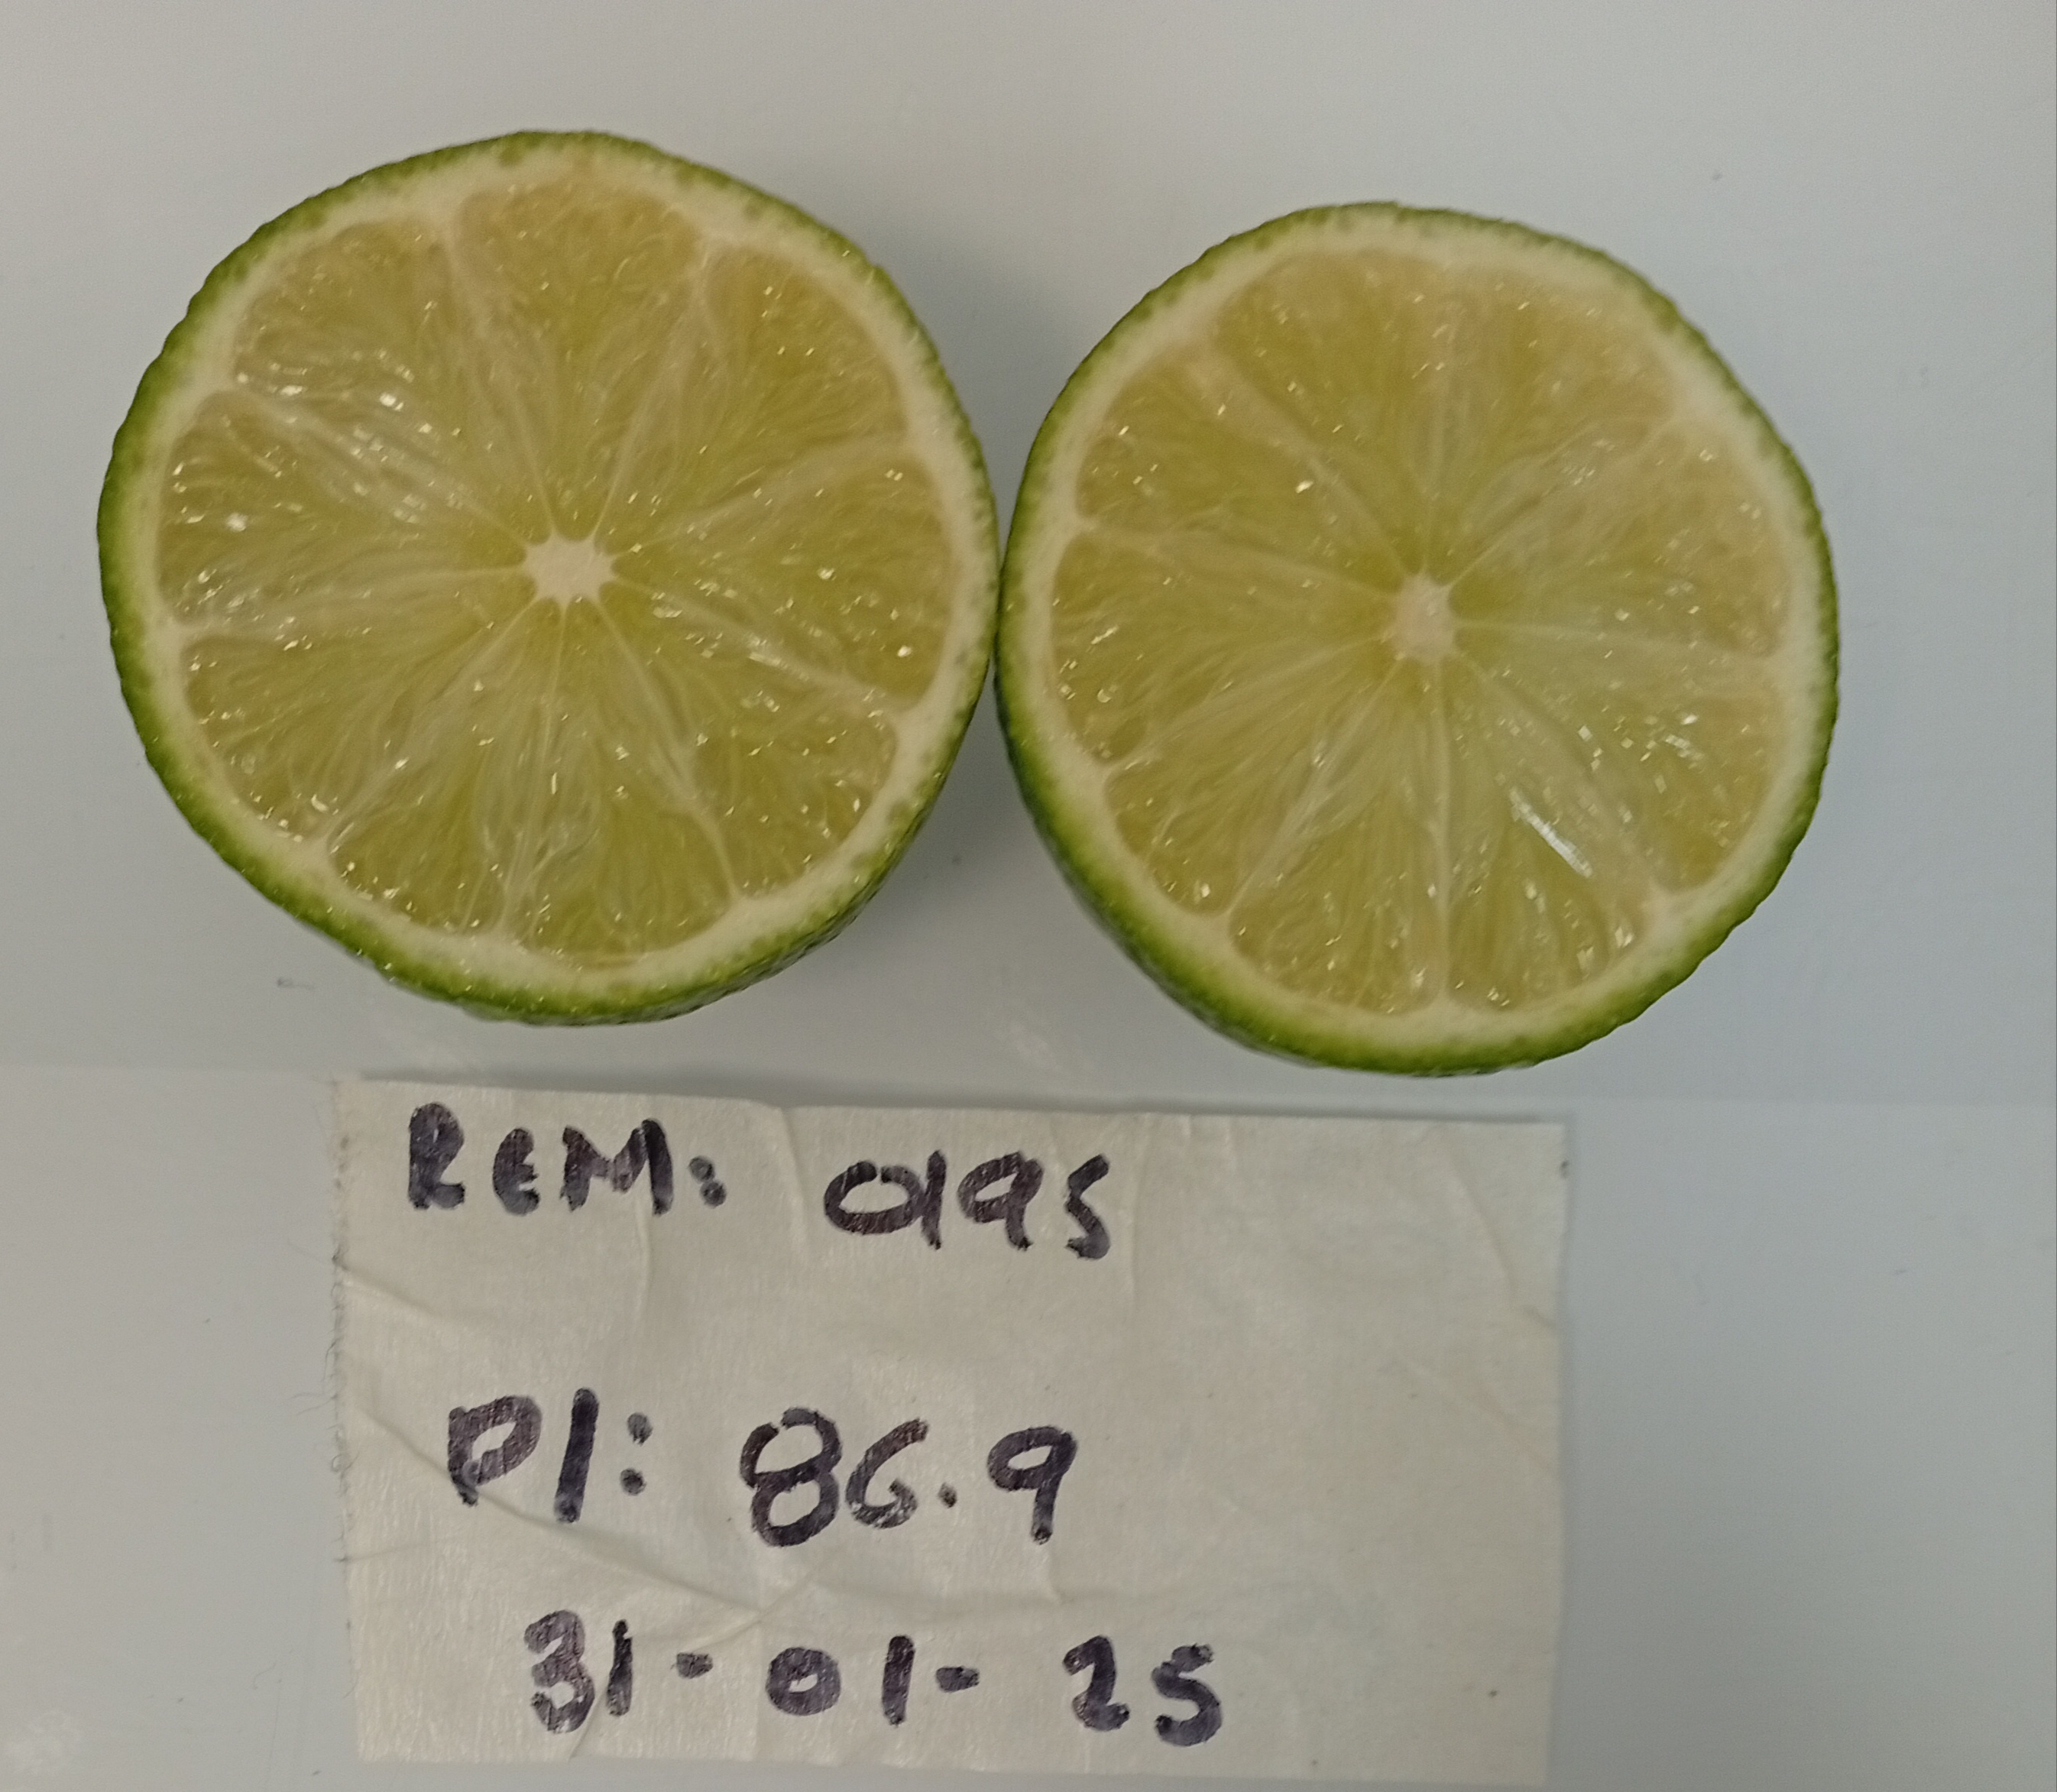 REM: 0195
PI: 86.9
31-01-25